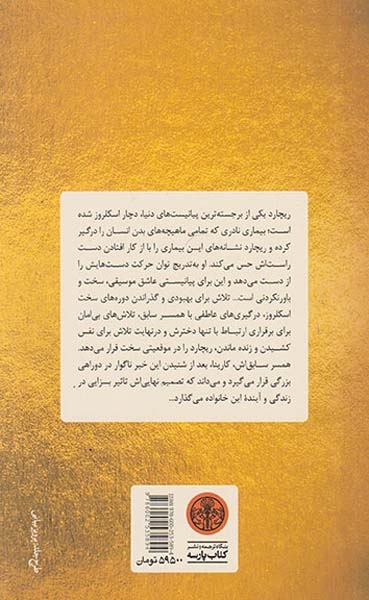 ریچارد یکی از برجسته‌ترین پیانیست‌های دنیا، دچار اسکلروز شده
است؛ بیماری نادری که تمامی ماهیچه‌های بدن انسان را درگیر
کرده و ریچارد نشانه‌های ایــن بیماری را با از کار افتادن دست
راست‌اش حس می‌کند. او به‌تدریج توان حرکت دست‌هایش را
از دست می‌دهد و این برای پیانیستی عاشق موسیقی، سخت و
باورنکردنی است... تلاش برای بهبودی و گذراندن دوره‌های سخت
اسکلروز، درگیری‌های عاطفی با همسر سابق، تلاش‌های بی‌امان
برای برقراری ارتباط با تنها دخترش و درنهایت تلاش برای نفس
کشیدن و زنده ماندن، ریچارد را در موقعیتی سخت قرار می‌دهد.
همسر سابق‌اش، کارینا، بعد از شنیدن این خبر ناگوار در دوراهی
بزرگی قرار می‌گیرد و می‌داند که تصمیم نهایی‌اش تاثیر بسزایی در
زندگی و آیندهٔ این خانواده می‌گذارد...
بنگاه ترجمه و نشر
کتاب پارسه
۵۹۵۰۰ تومان